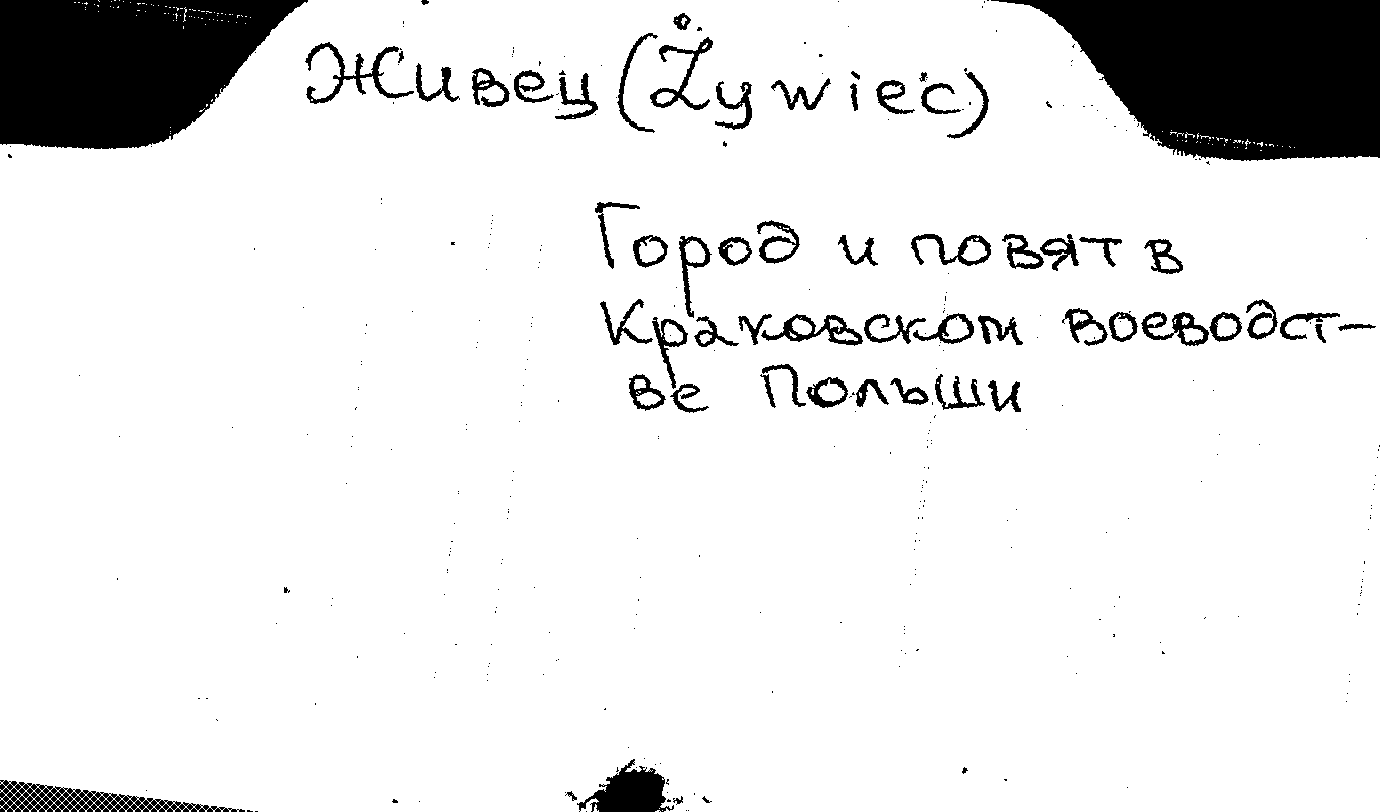 Живец (Żywiec)
Город и повят в
Краковском воеводст-
ве Польши